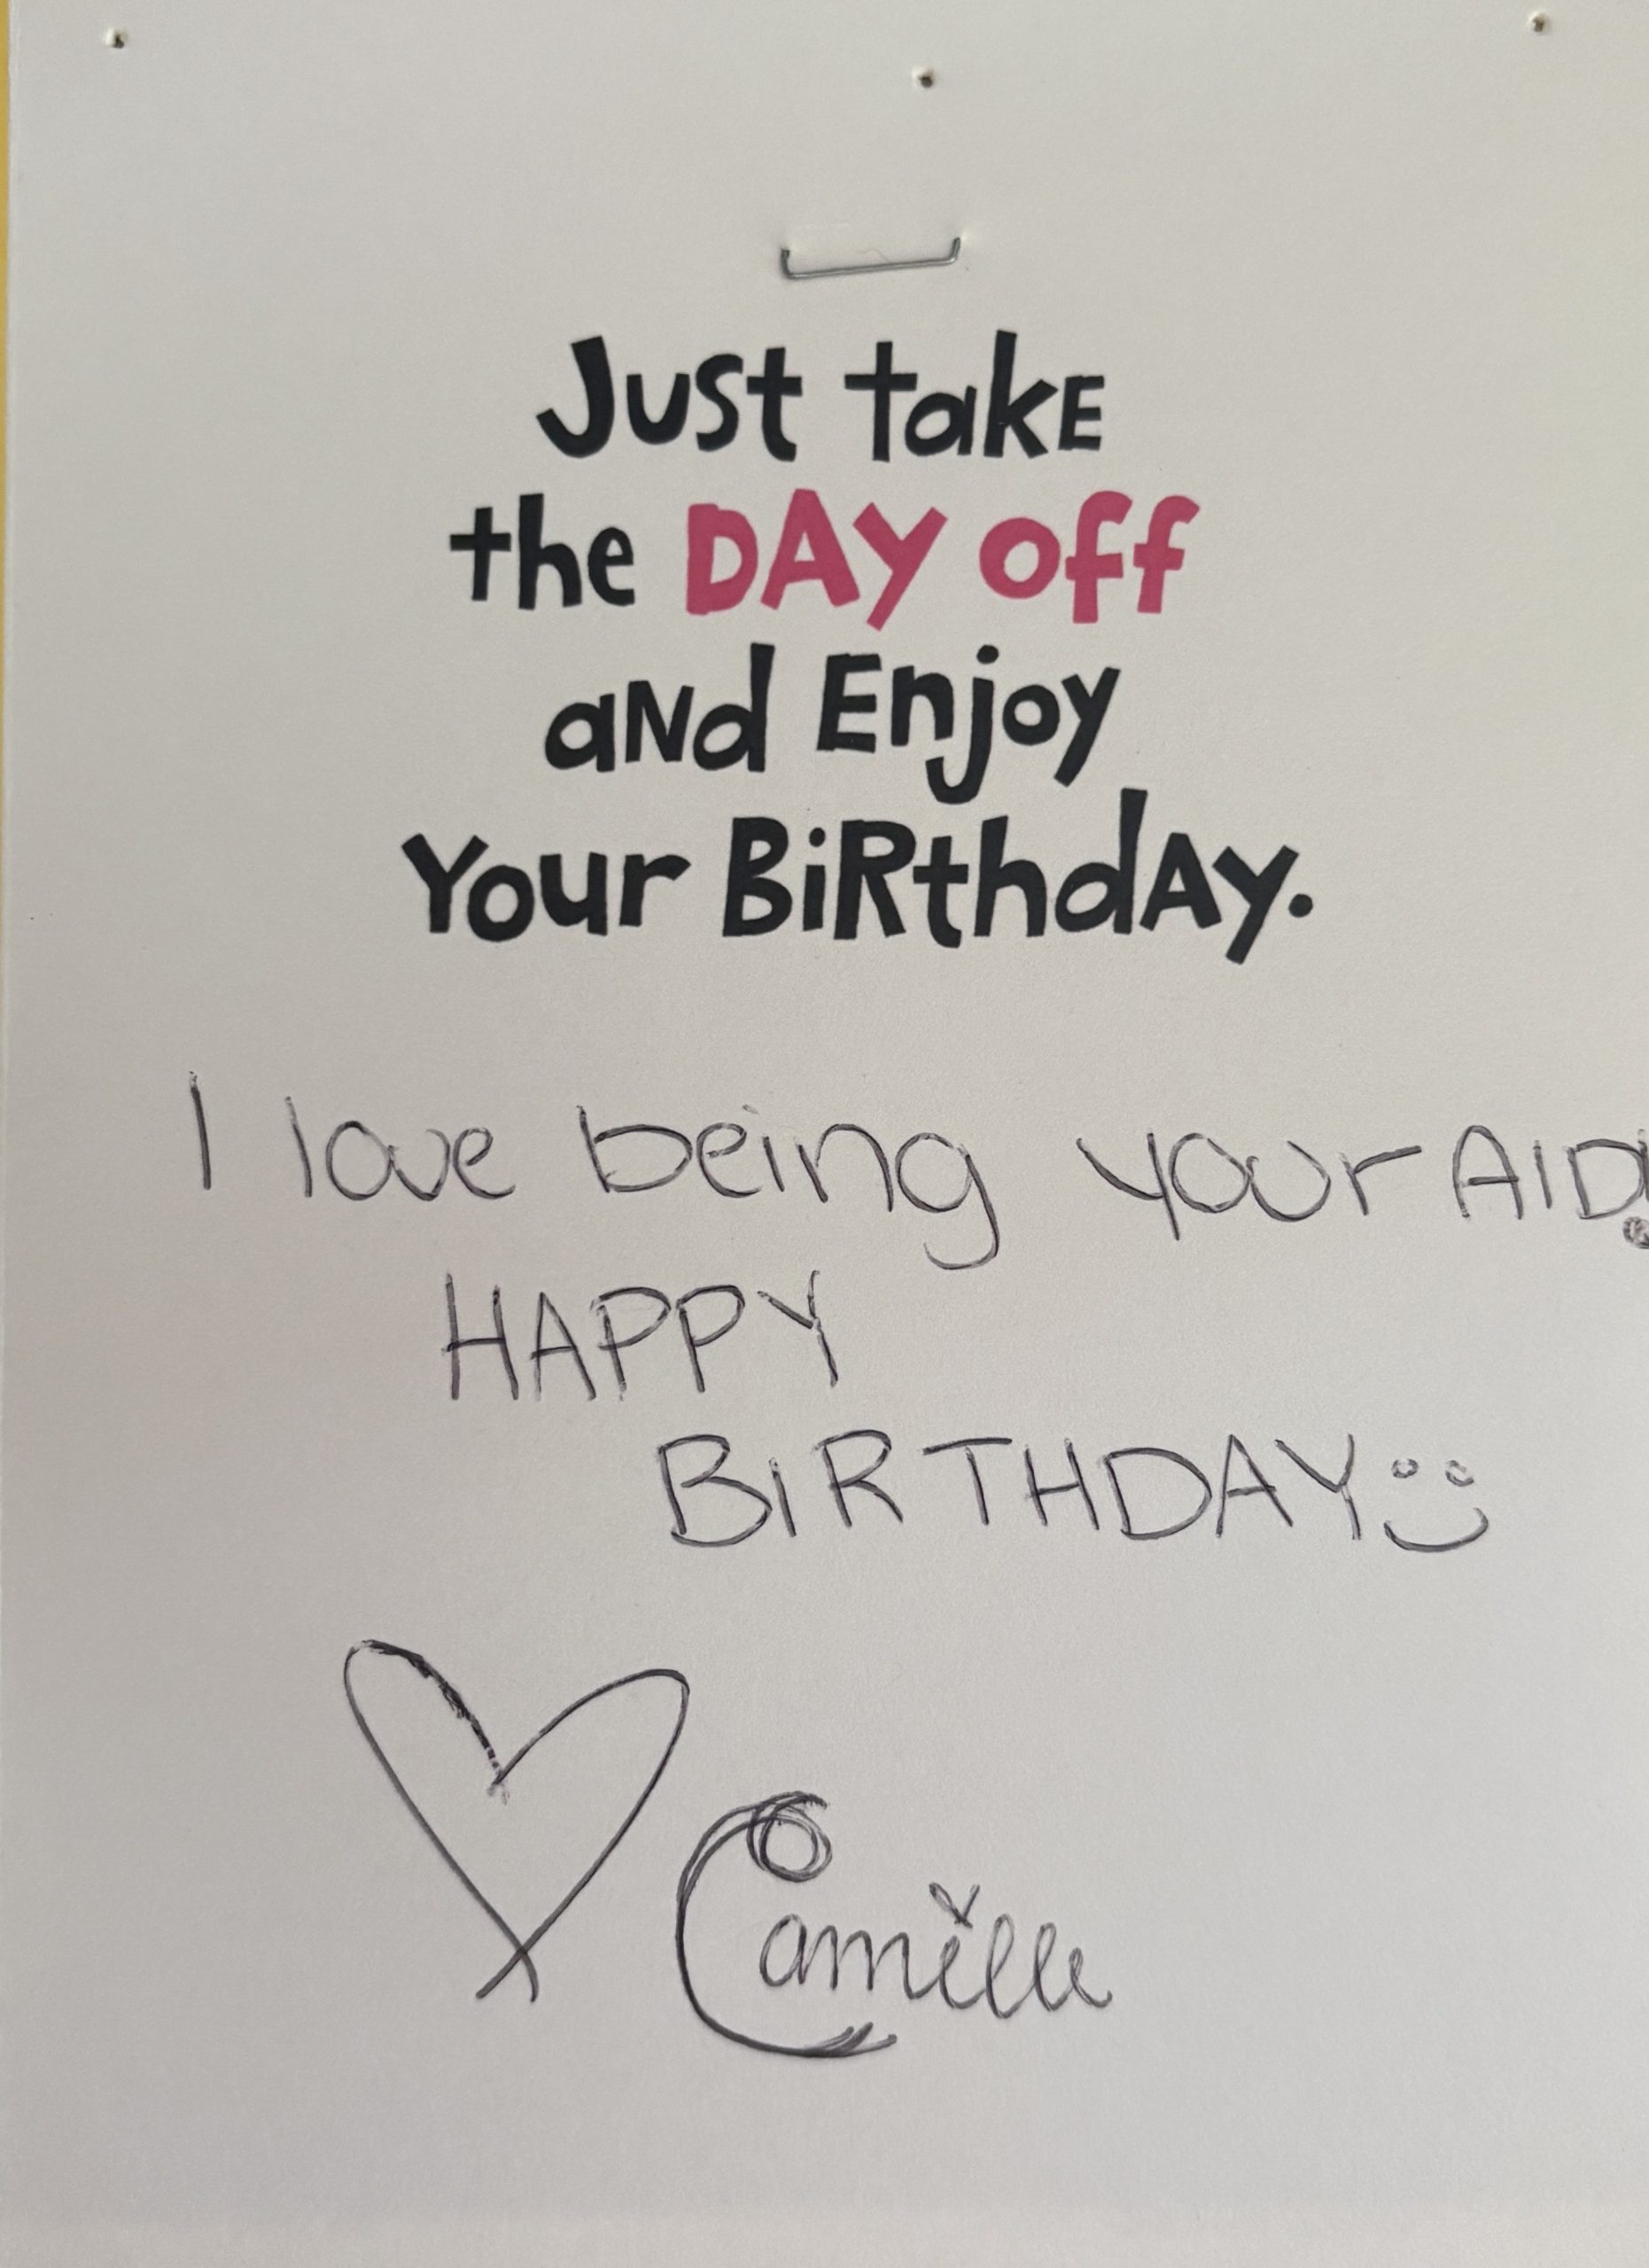 Just take
the DAY off
and Enjoy
Your BiRthdAy.
I love being your AID!
HAPPY
BiRTHDAY
Camille